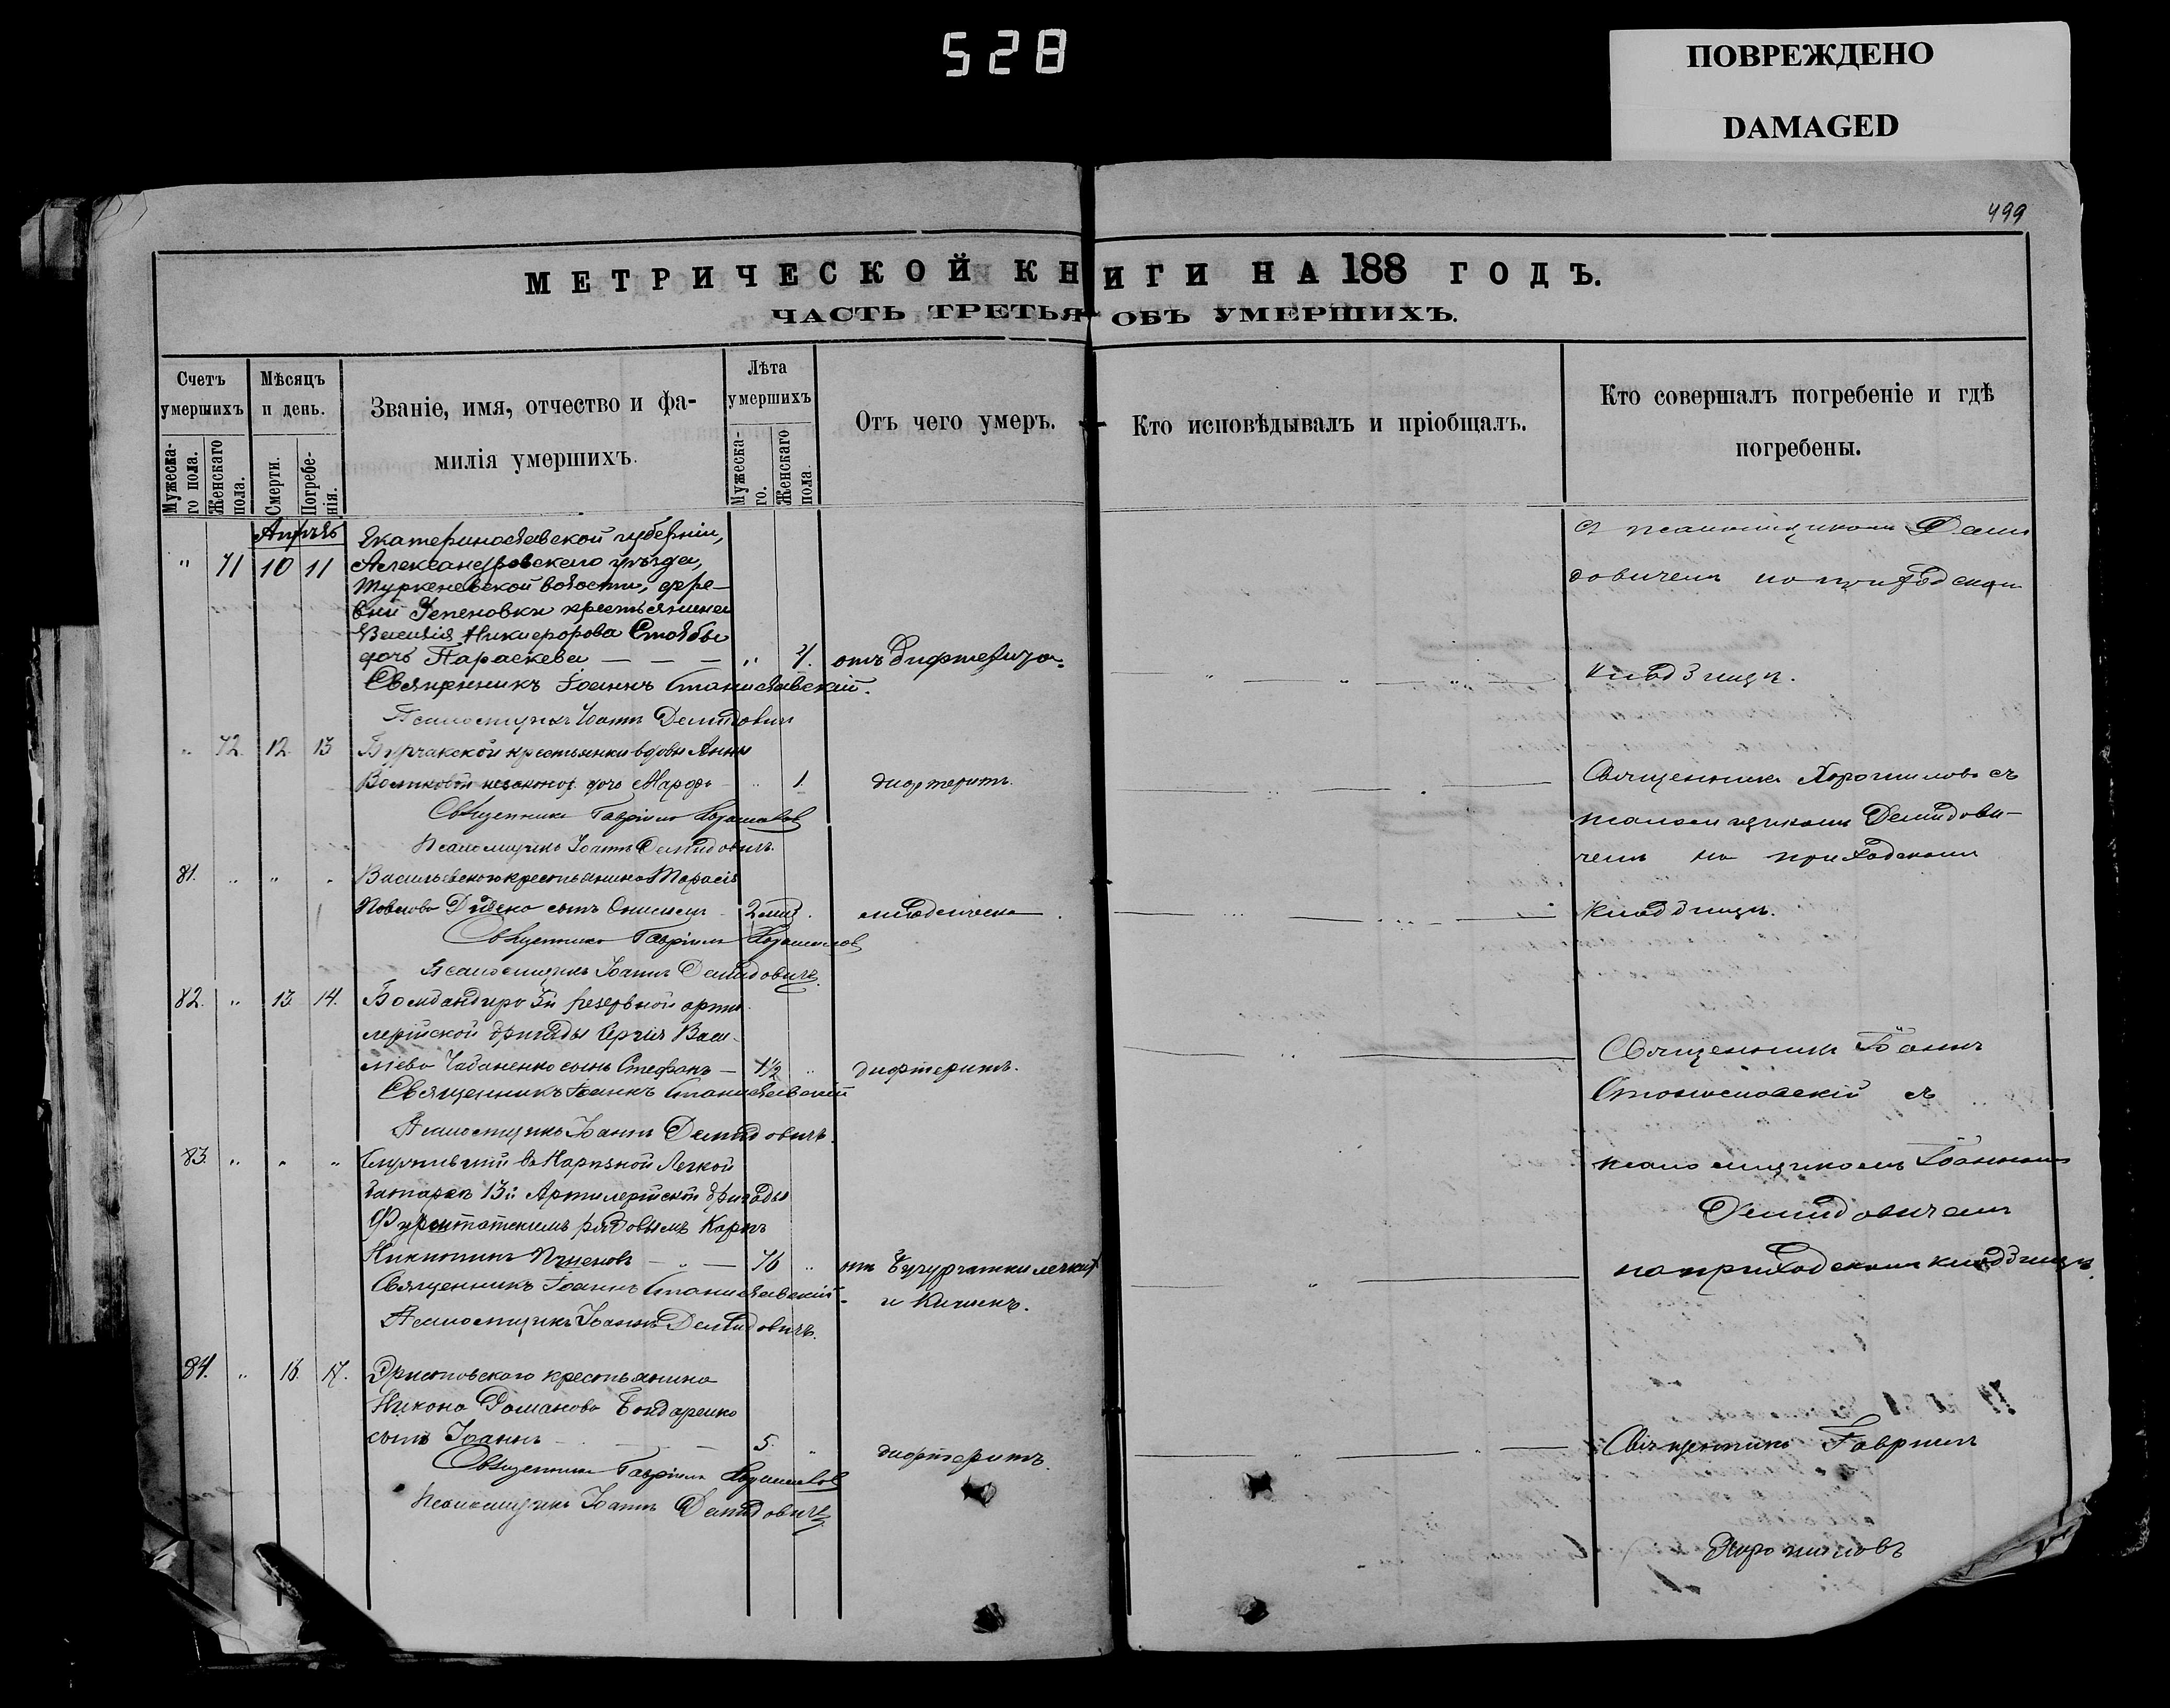 528
ПОВРЕЖДЕНО
DAMAGED
499
МЕТРИЧЕСКОЙ КНИГИ НА 188 ГОДЪ.
ЧАСТЬ ТРЕТЬЯ ОБЪ УМЕРШИХЪ.
Счетъ умершихъ
Мужеска-го пола.
Женскаго пола.
Мѣсяцъ и день.
Смерти.
Погребе-нія.
Званіе, имя, отчество и фа-
милія умершихъ.
Лѣта умершихъ
Мужеска-го.
Женскаго пола.
Отъ чего умеръ.
Кто исповѣдывалъ и пріобщалъ.
Кто совершалъ погребеніе и гдѣ
погребены.
Апрѣль
Екатеринославской губерніи,
" 71 10 11 Александровскаго уѣзда,
Туркеневской волости, дере-
вни Зепеновки крестьянина
Василія Никифорова Столбы
дочь Параскева — — — " 4. отъ дифтерита.
Священникъ Іоаннъ Станиславскій.
Псаломщикъ Іоаннъ Демидовичъ
съ псаломщикомъ Деми
довичемъ на приходскомъ
кладбищѣ.
" 72. 12. 13 Бурчакской крестьянки вдовы Анны
Воликовой незаконор. дочь Марфа " 1. дифтеритъ.
Священникъ Гавріилъ Хорошиловъ
Псаломщикъ Іоаннъ Демидовичъ.
Священникъ Хорошиловъ съ
псаломщикомъ Демидови-
чемъ на приходскомъ
кладбищѣ.
81. " " " Васильевскаго крестьянина Тарасія
Павлова Дидено сынъ Онисимъ 2 мѣс. младенческ
Священникъ Гавріилъ Хорошиловъ
Псаломщикъ Іоаннъ Демидовичъ.
82. " 13. 14. Бомбандира 5й резервной арти
лерійской бригады Сергія Васи-
лиева Чабаненко сынъ Стефанъ — 1½ " дифтеритъ.
Священникъ Іоаннъ Станиславскій
Псаломщикъ Іоаннъ Демидовичъ.
Священникъ Іоаннъ
Станиславскій съ
псаломщикомъ Іоанномъ
Демидовичемъ
на приходскомъ кладбищѣ.
83. " " " Служившій въ Легкой
батареѣ 13й Артилерійской бригады
Фурштатскимъ рядовымъ Карпъ
Никитинъ — " — 76 " отъ легкихъ
и Кишекъ.
Священникъ Іоаннъ Станиславскій
Псаломщикъ Іоаннъ Демидовичъ.
84. " 16. 17. Эристовскаго крестьянина
Никона Романова Бондаренко
сынъ Іоаннъ — — 5. " дифтеритъ.
Священникъ Гавріилъ Хорошиловъ
Псаломщикъ Іоаннъ Демидовичъ
Священникъ Гавріилъ
Хорошиловъ